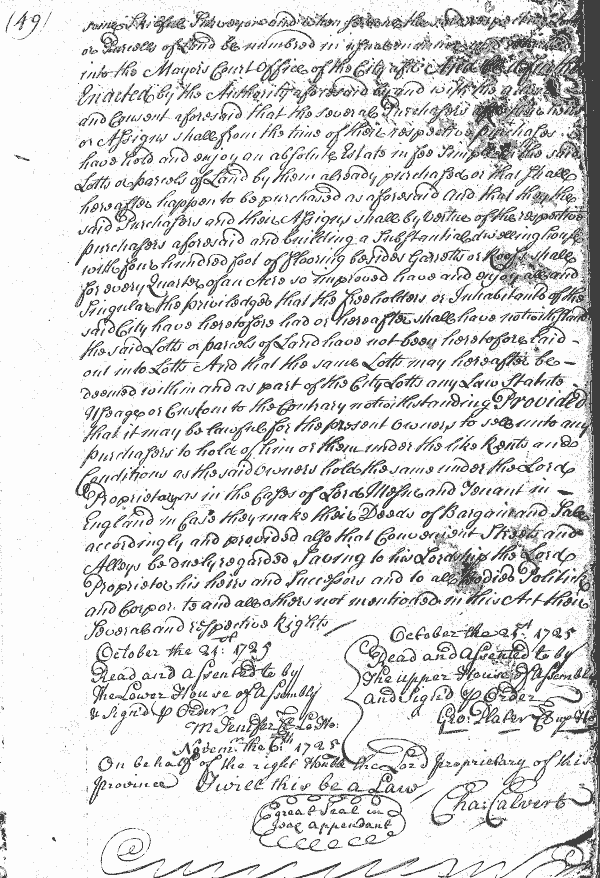 (49)
some Skilful Surveyor and when
or Parcells of Land be numbred in
into the Mayors Court Office of the City
Enacted by the Authority aforesaid by and with the advice
and Consent aforesaid that the several Purchasers
or Assigns shall from the time of their respective purchases
have hold and enjoy an absolute Estate in fee Simple in the said
Lotts or parcels of Land by them already purchased or that shall
hereafter happen to be purchased as aforesaid And that the
said Purchasers and their Assigns shall by vertue of the respective
purchases aforesaid and building a Substantial dwelling house
with four hundred foot of flooring besides Garretts or Roofs shall
for every Quarter of an Acre so improved have and enjoy all and
Singular the priviledges that the freeholders or Inhabitants of the
said City have heretofore had or hereafter shall have notwithstand
the said Lotts or parcels of Land have not been heretofore laid -
out into Lotts And that the same Lotts may hereafter be -
deemed within and as part of the City Lotts any Law Statute
Usage or Custom to the Contrary notwithstanding Provided
that it may be lawful for the present Owners to sell unto any
purchasers to hold of him or them under the like Rents and
Conditions as the said Owners hold the same under the Lord
Proprietary as in the Cases of Lord Mesne and Tenant in -
England in Case they make their Deeds of Bargain and Sale
accordingly and provided also that Convenient Streets and
Alleys be duely regarded Saving to his Lordship the Lord
Proprietor his heirs and Successors and to all Bodies Politick
and Corpor te and all others not mentioned in this Act their
Several and respective Rights
October the 21st 1725
Read and Assented to by
the Lower House of Assembly
& Sign'd p Order
M. Jenifer Cl Lo Ho:
October the 25th 1725
Read and Assented to by
the upper House of Assembly
and Sign'd p Order
Geo: Plater Cl up Ho
Novem. the 6th 1725
On behalf of the right Honble the Lord Proprietary of this
Province I will this be a Law
Cha: Calvert
great Seal in
wax Appendant